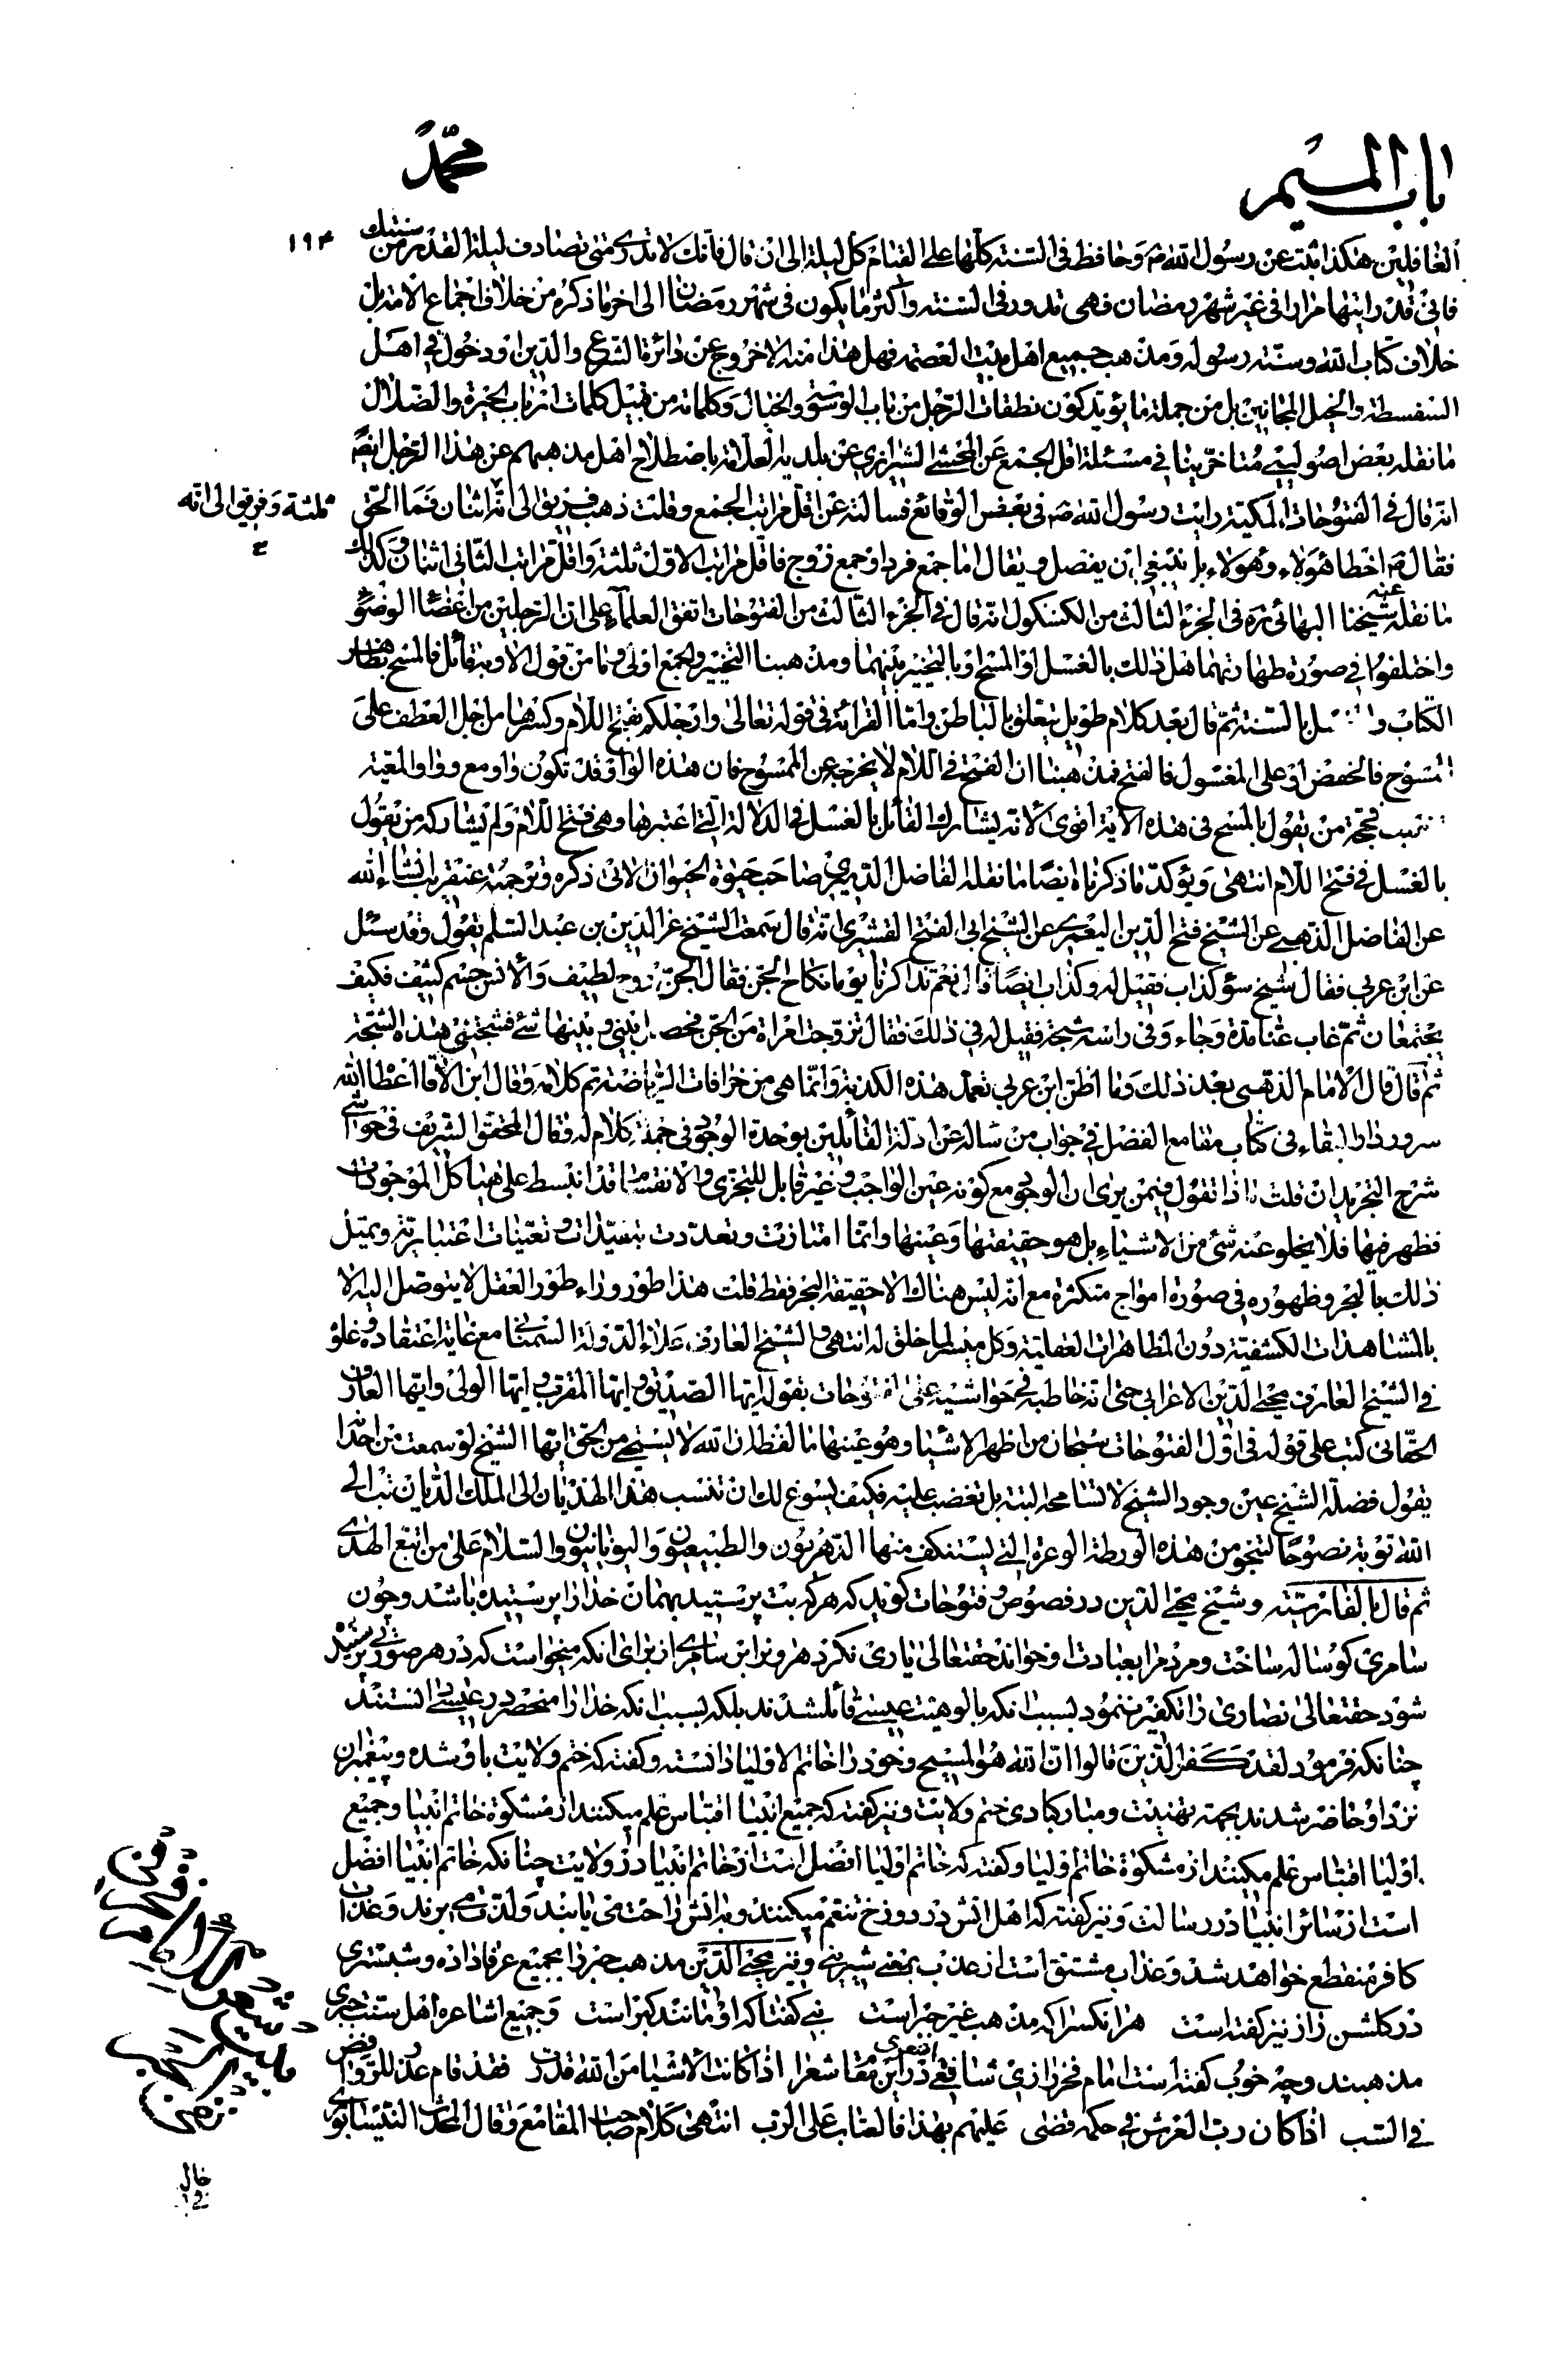 باب الميم
محمّد
١٩٤
الغافلين هكذا ثبت عن رسول الله ص وحافظ فى السّنة كلّها على القيام كل ليلة الى ان قال فانّك لاتدرى متى تصادف ليلة القدر من سنتك
فانى قد رايتها مرارا فى غير شهر رمضان فهى تدور فى السّنة واكثر ما يكون فى شهر رمضان الى اخر ما ذكره من خلاف اجماع الامة بل
خلاف كتاب الله وسنّة رسوله ومذهب جميع اهل بيت العصمة فهل هذا منه الا خروج عن دائرة الشرع والدّين او دخول فى اهل
السفسطة والخيل المجانين بل من جملة ما يؤيد كون نطقات الرّجل من باب الوسوسة والخيال وكلماته من قبيل كلمات ارباب الحيرة والضلال
ما نقله بعض اصوليّى متاخرينا فى مسئلة اقل الجمع عن المحشى الشيرازى عن بلديه العلامة باصطلاح اهل مذهبهم عن هذا الرّجل ايضا
انه قال فى الفتوحات المكية رايت رسول الله ص فى بعض الوقائع فسالته عن اقل مراتب الجمع وقلت ذهب فريق الى انّه اثنان فما الحق
ثلثة وفريق الى انه
فقال ص اخطا هؤلاء وهؤلاء بل ينبغى ان يفصل ويقال اما جمع فرد او جمع زوج فاقل مراتب الاول ثلثة واقل مراتب الثانى اثنان وكذلك
ما نقله عنه شيخنا البهائى ره فى الجزء الثالث من الكشكول انّه قال فى الجزء الثالث من الفتوحات اتفق العلماء على ان الرجلين من اعضاء الوضوء
واختلفوا فى صورة طهارتهما هل ذلك بالغسل او المسح او بالتخيير بينهما ومذهبنا التخيير والجمع اولى وما من قول الا وبه قائل فالمسح بظاهر
الكتاب و بالسّنة ثمّ قال بعد كلام طويل يتعلق بالباطن وامّا القرائة فى قوله تعالى وارجلكم بفتح اللام وكسرها من اجل العطف على
الممسوح فالخفض او على المغسول فالفتح فمذهبنا ان الفتح فى اللام لا يخرجه عن الممسوح فان هذه الواو قد تكون واو مع وواو المعيّة
تنصب فحجة من يقول بالمسح فى هذه الاية اقوى لانّه يشارك القائل بالغسل فى الدلالة الّتى اعتبرها وهى فتح اللام ولم يشاركه من يقول
بالغسل فى فتح اللام انتهى ويؤكد ما ذكرناه ايضا ما نقله الفاضل الدميرى صاحب حيوة الحيوان الاتى ذكره وترجمته عنقريب انشاء الله
عن الفاضل الذهبى عن الشيخ فتح الدين اليعمرى عن الشيخ ابى الفتح القشيرى انّه قال سمعت الشيخ عز الدين بن عبد السّلم يقول وقد سئل
عن ابن عربى فقال شيخ سوء كذاب فقيل له وكذاب ايضا قال نعم تذاكرنا يوما نكاح الجن فقال الجنّ روح لطيف والانس جسم كثيف فكيف
يجتمعان ثمّ غاب عنا مدة وجاء وفى راسه شجة فقيل له فى ذلك فقال تزوجت امراة من الجن فحصل بينى وبينها شئ فشجتنى هذه الشّجة
ثمّ قال قال الامام الذهبى بعد ذلك وما اظن ابن عربى تعمد هذه الكذبة وانّما هى من خرافات الرياضة تم كلامه وقال ابن الاقا اعطاه الله
سرور دار البقاء فى كتاب مقامع الفضل فى جواب من ساله عن ادلة القائلين بوحدة الوجود فى جملة كلام له فقال المحقق الشريف فى حواشى
شرح التجريد ان قلت ماذا تقول فيمن يرى ان الوجود مع كونه عين الواجب وغير قابل للتجزى والانقسام قد انبسط على هياكل الموجودات
فظهر فيها فلا يخلو عنه شئ من الاشياء بل هو حقيقتها وعينها وانّما امتازت وتعددت بتقيّدات وتعيّنات اعتبارية ويمثل
ذلك بالبحر وظهوره فى صورة امواج متكثرة مع انّه ليس هناك الا حقيقة البحر فقط قلت هذا طور وراء طور العقل لا يتوصل اليه الا
بالمشاهدات الكشفيّة دون المناظرات العقلية وكل ميسر لما خلق له انتهى والشيخ العارف علاء الدّولة السّمنانى مع غاية اعتقاده وغلوه
فى الشيخ العارف محيى الدّين الاعرابى حتى انّه خاطبه فى حواشيه على الفتوحات بقوله ايّها الصّديق وايّها المقرب وايّها الولى وايّها العارف
الحقّانى كتب على قوله فى اوّل الفتوحات سبحان من اظهر الاشياء وهو عينها ما لفظه ان الله لا يستحيى من الحق ايّها الشيخ لو سمعت من احد انه
يقول فضلة الشيخ عين وجود الشيخ لا تسامحه البتة بل تغضب عليه فكيف يسوغ لك ان تنسب هذا الهذيان الى الملك الدّيان تب الى
الله توبة نصوحا لتنجو من هذه الورطة الوعرة الّتى يستنكف منها الدّهريون والطبيعيّون واليونانيّون والسّلام على من اتّبع الهدى
ثم قال بالفارسيّة وشيخ محيى الدين در فصوص وفتوحات كويد كه هركه بت پرستيد بهمان خدا را پرستيده باشد وچون
سامرى كوساله ساخت ومردم را بعبادت او خواند حقتعالى يارى نكرد هرون را بر سامرى از براى انكه ميخواست كه در هر صورتى پرستيده
شود حقتعالى نصارى را تكفير ننمود بسبب انكه بالوهيت عيسى قائل شدند بلكه بسبب انكه خدا را منحصر در عيسى دانستند
چنانكه فرمود لقد كفر الّذين قالوا انّ الله هو المسيح وخود را خاتم الاوليا دانسته وكفته كه ختم ولايت باو شده وپيغمبران
نزد او حاضر شدند بجهة تهنيت ومباركبادى ختم ولايت ونيز كفته كه جميع انبيا اقتباس علم ميكنند از مشكوة خاتم انبيا وجميع
اوليا اقتباس علم ميكنند از مشكوة خاتم اوليا وكفته كه خاتم اوليا افضل است از خاتم انبيا در ولايت چنانكه خاتم انبيا افضل
است از سائر انبيا در رسالت ونيز كفته كه اهل اتش در دوزخ تنعم ميكنند وباتش راحت مى يابند ولذّت مى برند وعذاب
كافر منقطع خواهد شد وعذاب مشتق است از عذب بمعنى شيرينى ونيز محيى الدّين مذهب جبر را بجميع عرفا داده وشبسترى
در كلشن راز نيز كفته است هرانكس را كه مذهب غير جبر است نبى كفتا كه او مانند كبر است وجميع اشاعره اهل سنت جبرى
مذهبند وچه خوب كفته است امام فخر رازى شافعى اشعرى در اين مقام شعرا اذا كانت الاشيا من الله قدرت فقد قام عذر للروافض
فى السّب اذا كان ربّ العرش فى حكمه قضى عليهم بهذا فالعتاب على الرب انتهى كلام صاحب المقامع وقال المحدث النيسابورى